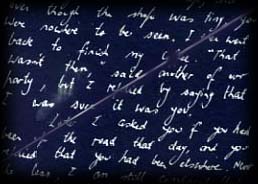 over though the shop was tiny you
were nowhere to be seen. I
back to finish my "That
wasn't then," said another of our
party, but I replied by saying that
I was sure it was you.
Later I asked you if you had
been on the road that day, and you
replied that you had been elsewhere. Now
to less, I am still